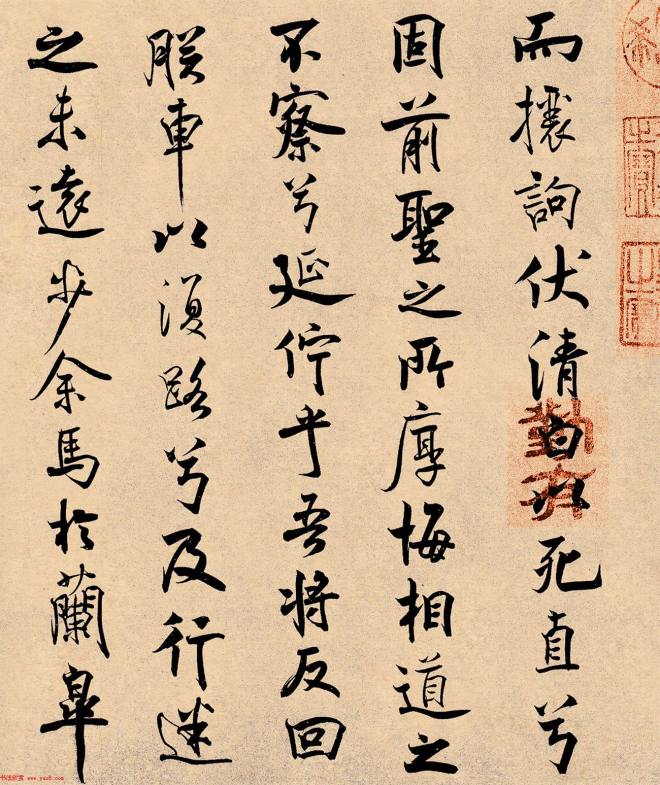 而攘訽伏清白以死直兮
固前聖之所厚悔相道之
不察兮延佇乎吾將反回
朕車以復路兮及行迷
之未遠步余馬於蘭皋
书法欣赏 www.yac8.com